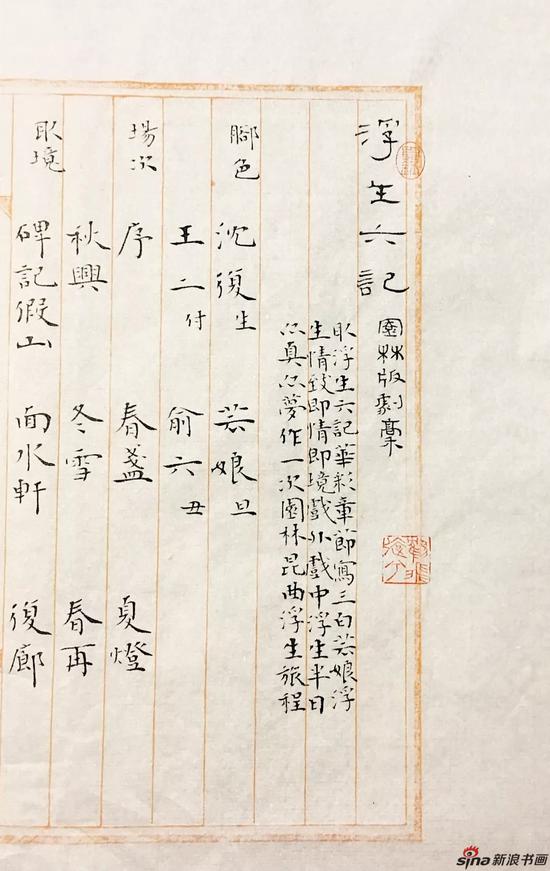 浮生六記 園林版劇稾
取浮生六記華彩章節寫三白芸娘浮
生情致即情即境戲外戲中浮生半日
真夢作一次園林昆曲浮生旅程
腳色 沈復生 芸娘旦
王二付 俞六丑
場次 序 春盞 夏燈
秋興 冬雪 春再
取境 碑記假山 面水軒 復廊
sina新浪书画